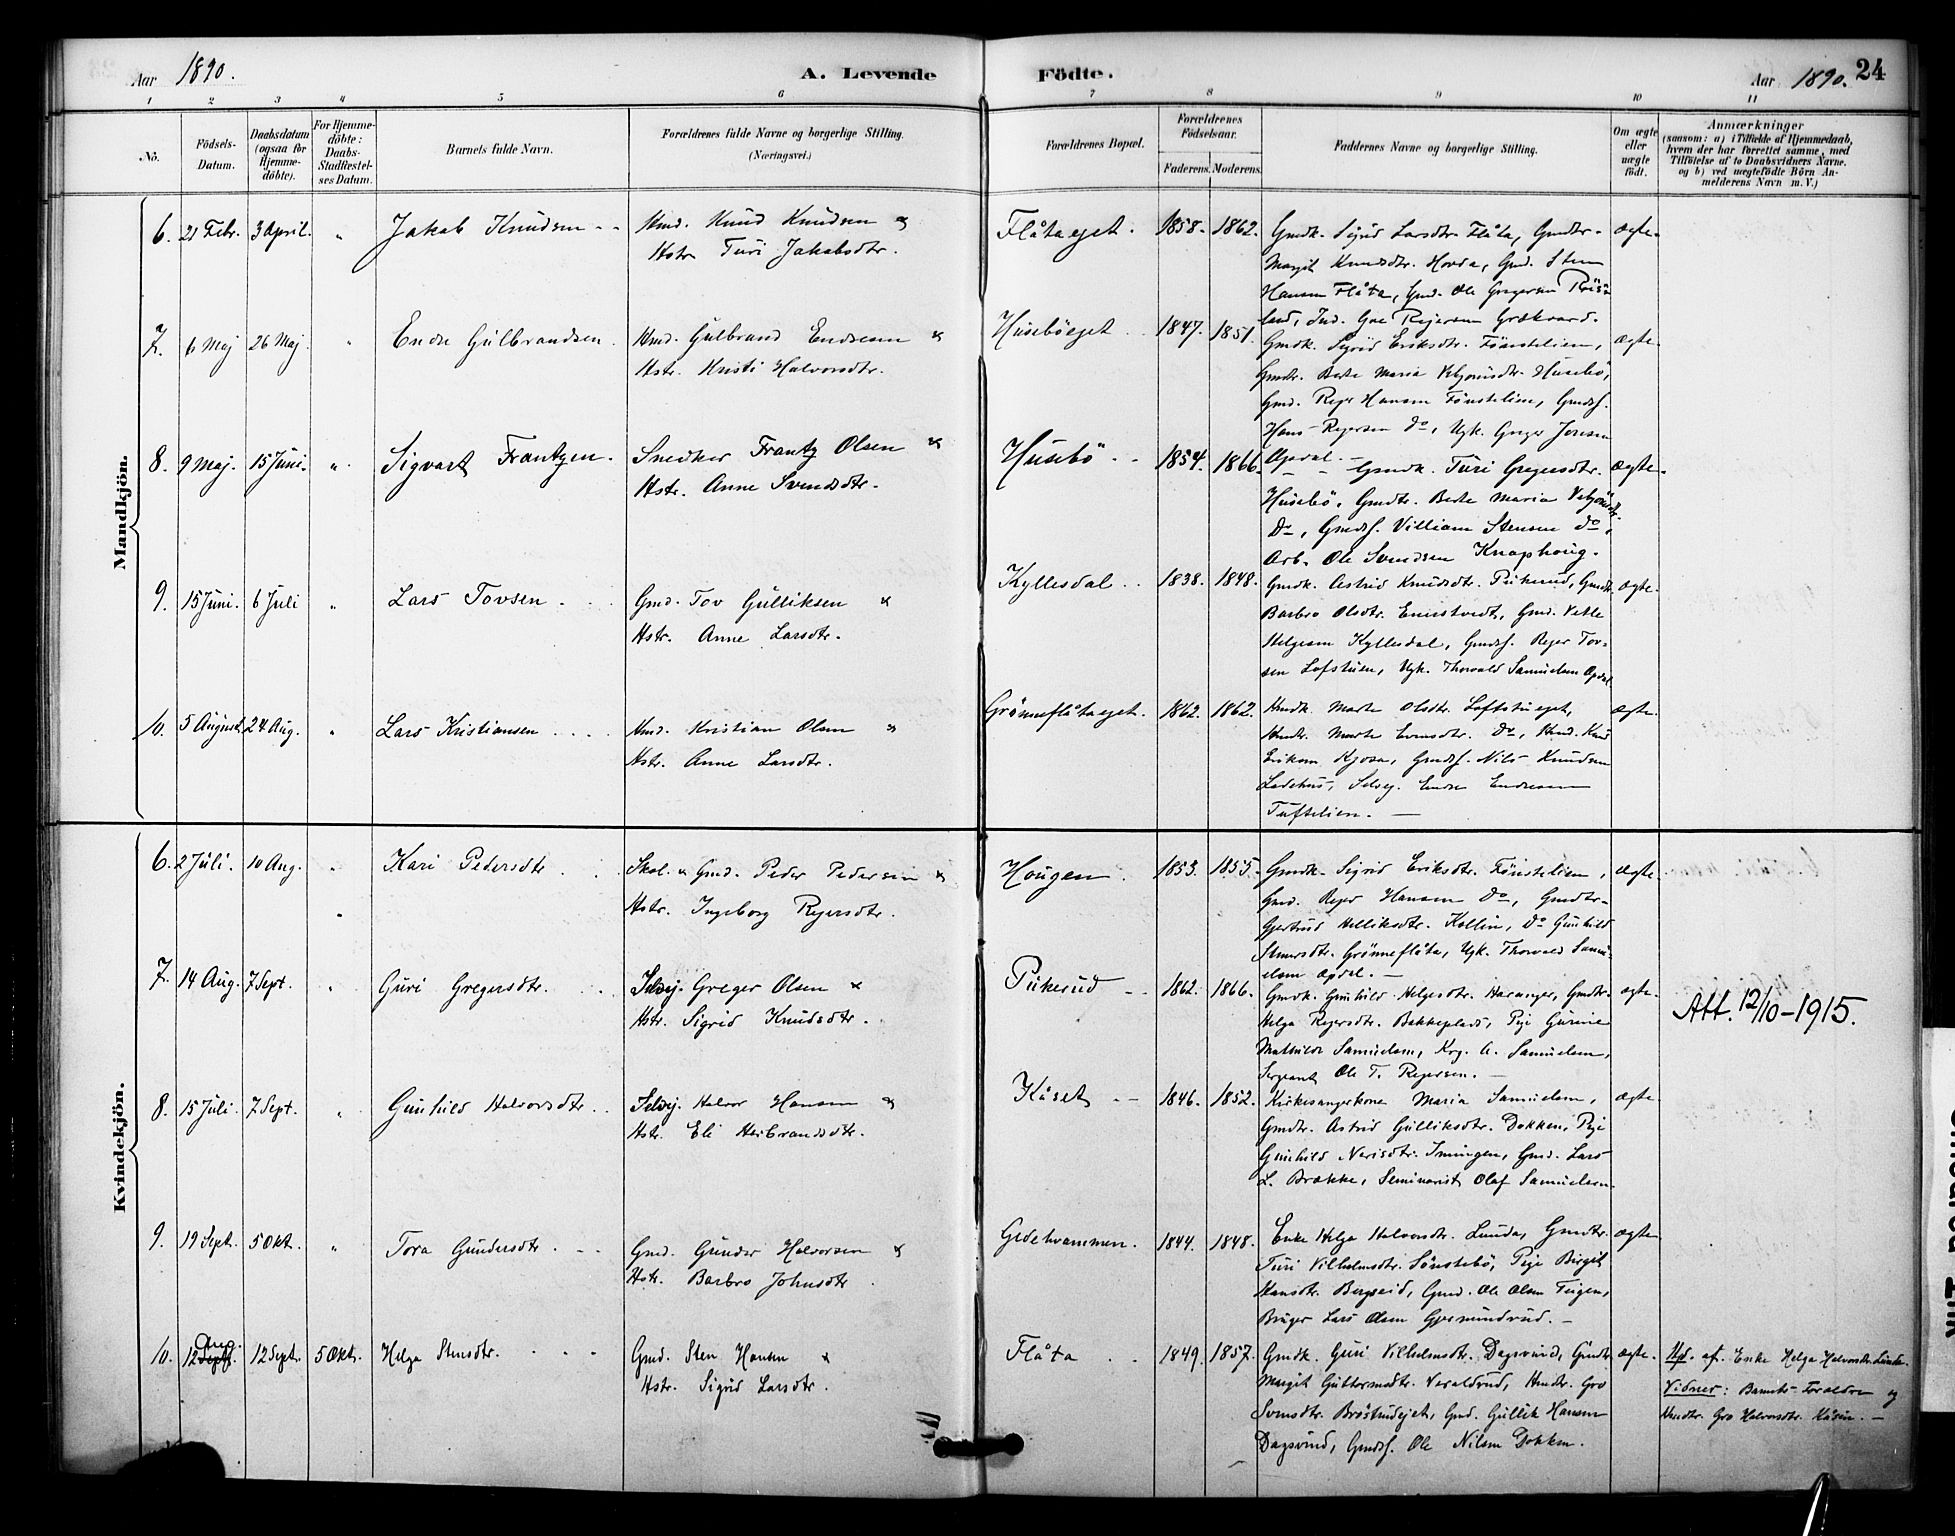 Aar 1890.
A. Levende Födte.
Aar 1890. 24
1 2 3 4 5 6 7 8 9 10 11
No.
Födsels-Datum.
Daabsdatum (ogsaa for Hjemme-döbte).
For Hjemme-döbte: Daabs-Stadfæstel-ses Datum.
Barnets fulde Navn.
Forældrenes fulde Navne og borgerlige Stilling.
(Næringsvei.)
Forældrenes Bopæl.
Forældrenes Födselsaar.
Faderens. Moderens.
Faddernes Navne og borgerlige Stilling.
Om ægte eller uægte födt.
Anmærkninger
(saasom: a) i Tilfælde af Hjemmedaab,
hvem der har forrettet samme, med
Tilföielse af to Daabsvidners Navne.
og b) ved uægtefödte Börn An-
melderens Navn m. V.)
Mandkjön.
6. 21 Febr. 3 April. " Jakob Knudsen
Hmd. Knud Knudsen &
Hstr. Turi Jakobsdtr.
Flåtaeget. 1858. 1862.
Gmdk. Sigrid Larsdtr. Flåta, Gmdtr.
Margit Knudsdtr. Hovda, Gmd. Sten
Hansen Flåta, Gmd. Ole Gregersen
land, Ind. Rejersen
ægte.
7. 6 Maj 26 Maj. " Endre Gulbrandsen.
Hmd. Gulbrand Endresen &
Hstr. Kristi Halvorsdtr.
Huseböeget. 1847. 1851.
Gmdk. Sigrid Eriksdtr. Fönstelien,
Gmdtr. Berte Maria Vebjörnsdtr. Husebö,
Gmd. Rejer Hansen Fönstelien, Gmdsf.
Hans Rejersen Do, Ugk. Greger Jonsen
Opdal.
ægte.
8. 9 Maj. 15 Juni. " Sigvart Frantzen.
Snedker Frantz Olsen &
Hstr. Anne Svendsdtr.
Husebö. 1854. 1866.
Gmdk. Turi Gregersdtr.
Husebö, Gmdtr. Berte Maria Vebjörnsdtr.
Do, Gmdsf. Villiam Stensen do,
Arb. Ole Svendsen Knaphoug.
ægte.
9. 15 Juni. 6 Juli " Lars Tovsen.
Gmd. Tov Gulliksen &
Hstr. Anne Larsdtr.
Kyllesdal. 1838. 1848.
Gmdk. Astrid Knudsdtr. Pukerud, Gmdtr.
Barbro Olsdtr. Enerstvedt, Gmd. Vetle
Helgesen Kyllesdal, Gmdsf. Rejer Tov-
sen Loftstuen, Ugk. Thorvald Samuelsen Opdal
ægte.
10. 5 August. 24 Aug. " Lars Kristiansen
Hmd. Kristian Olsen &
Hstr. Anne Larsdtr.
Grönneflåtaeget. 1862. 1862.
Hmdk. Marte Olsdtr. Loftstueget,
Hmdtr. Marte Do, Hmd. Knud
Eriksen Kjosa, Gmdsf. Nils Knudsen
Ladehus, Selvej. Endre Endresen
Tuftelien.
ægte.
Kvindekjön.
6. 2 Juli. 10 Aug. " Kari Pedersdtr
Skol. & Gmd. Peder Pedersen &
Hstr. Ingeborg Rejersdtr.
Hougen. 1853. 1855.
Gmdk. Sigrid Eriksdtr. Fönstelien,
Gmd. Rejer Hansen Do, Gmdtr.
Gjertrud Helliksdtr. Kollin, Do Gunhild
Grönneflåta, Ugk. Thorvald Samu-
elsen Opdal.
ægte.
7. 14 Aug. 7 Sept. " Guri Gregersdtr.
Selvej. Greger Olsen &
Hstr. Sigrid Knudsdtr.
Pukerud 1862. 1866.
Gmdk. Gunhild Helgesdtr. Gmdtr.
Helga Rejersdtr. Bakkeplads, Pige Gurine
Mathilde Samuelsen, Krg. A. Samuelsen,
Sergeant Ole T. Rejersen.
ægte.
Att. 12/10-1915.
8. 15 Juli. 7 Sept. " Gunhild Halvorsdtr.
Selvej. Halvor Hansen &
Hstr. Eli Herbrandsdtr.
Kåset 1846. 1852.
Kirkesangerkone Maria Samuelsen,
Gmdtr. Astrid Gulliksdtr. Dokken, Pige
Gunhild Narisdtr. Imingen, Gmd. Lars
L. Brække, Seminarist Olaf Samuelsen
ægte.
9. 19 Sept. 5 Okt. " Tora Gundersdtr.
Gmd. Gunder Halvorsen &
Hstr. Barbro Johnsdtr
Gedehvammen. 1844. 1848.
Enke Helga Halvorsdtr. Lunda, Gmdtr.
Turi Vilhelmsdtr. Sönstebö, Pige Birgit
Hansdtr. Bergseid, Gmd. Ole Olsen Teigen,
Bruger Lars Olsen Gjermundrud.
ægte
10. 12 Aug. 12 Sept. 5 Okt. Helga Stensdtr.
Gmd. Sten Hansen &
Hstr. Sigrid Larsdtr.
Flåta 1849. 1857.
Gmdk. Guri Vilhelmsdtr. Dagsvind, Gmdtr
Margit Guttormsdtr. Vasaldrud, Hmdtr. Gro
Svensdtr. Gmd. Gullik Hansen
Dagsvind, Gmdsf. Ole Nilsen Dokken.
ægte.
Hd. af Enke Helga Halvorsdtr. Lunde.
Vidner: Barnets Forældre og
Hmdtr. Gro Halvorsdtr. Kåsen.